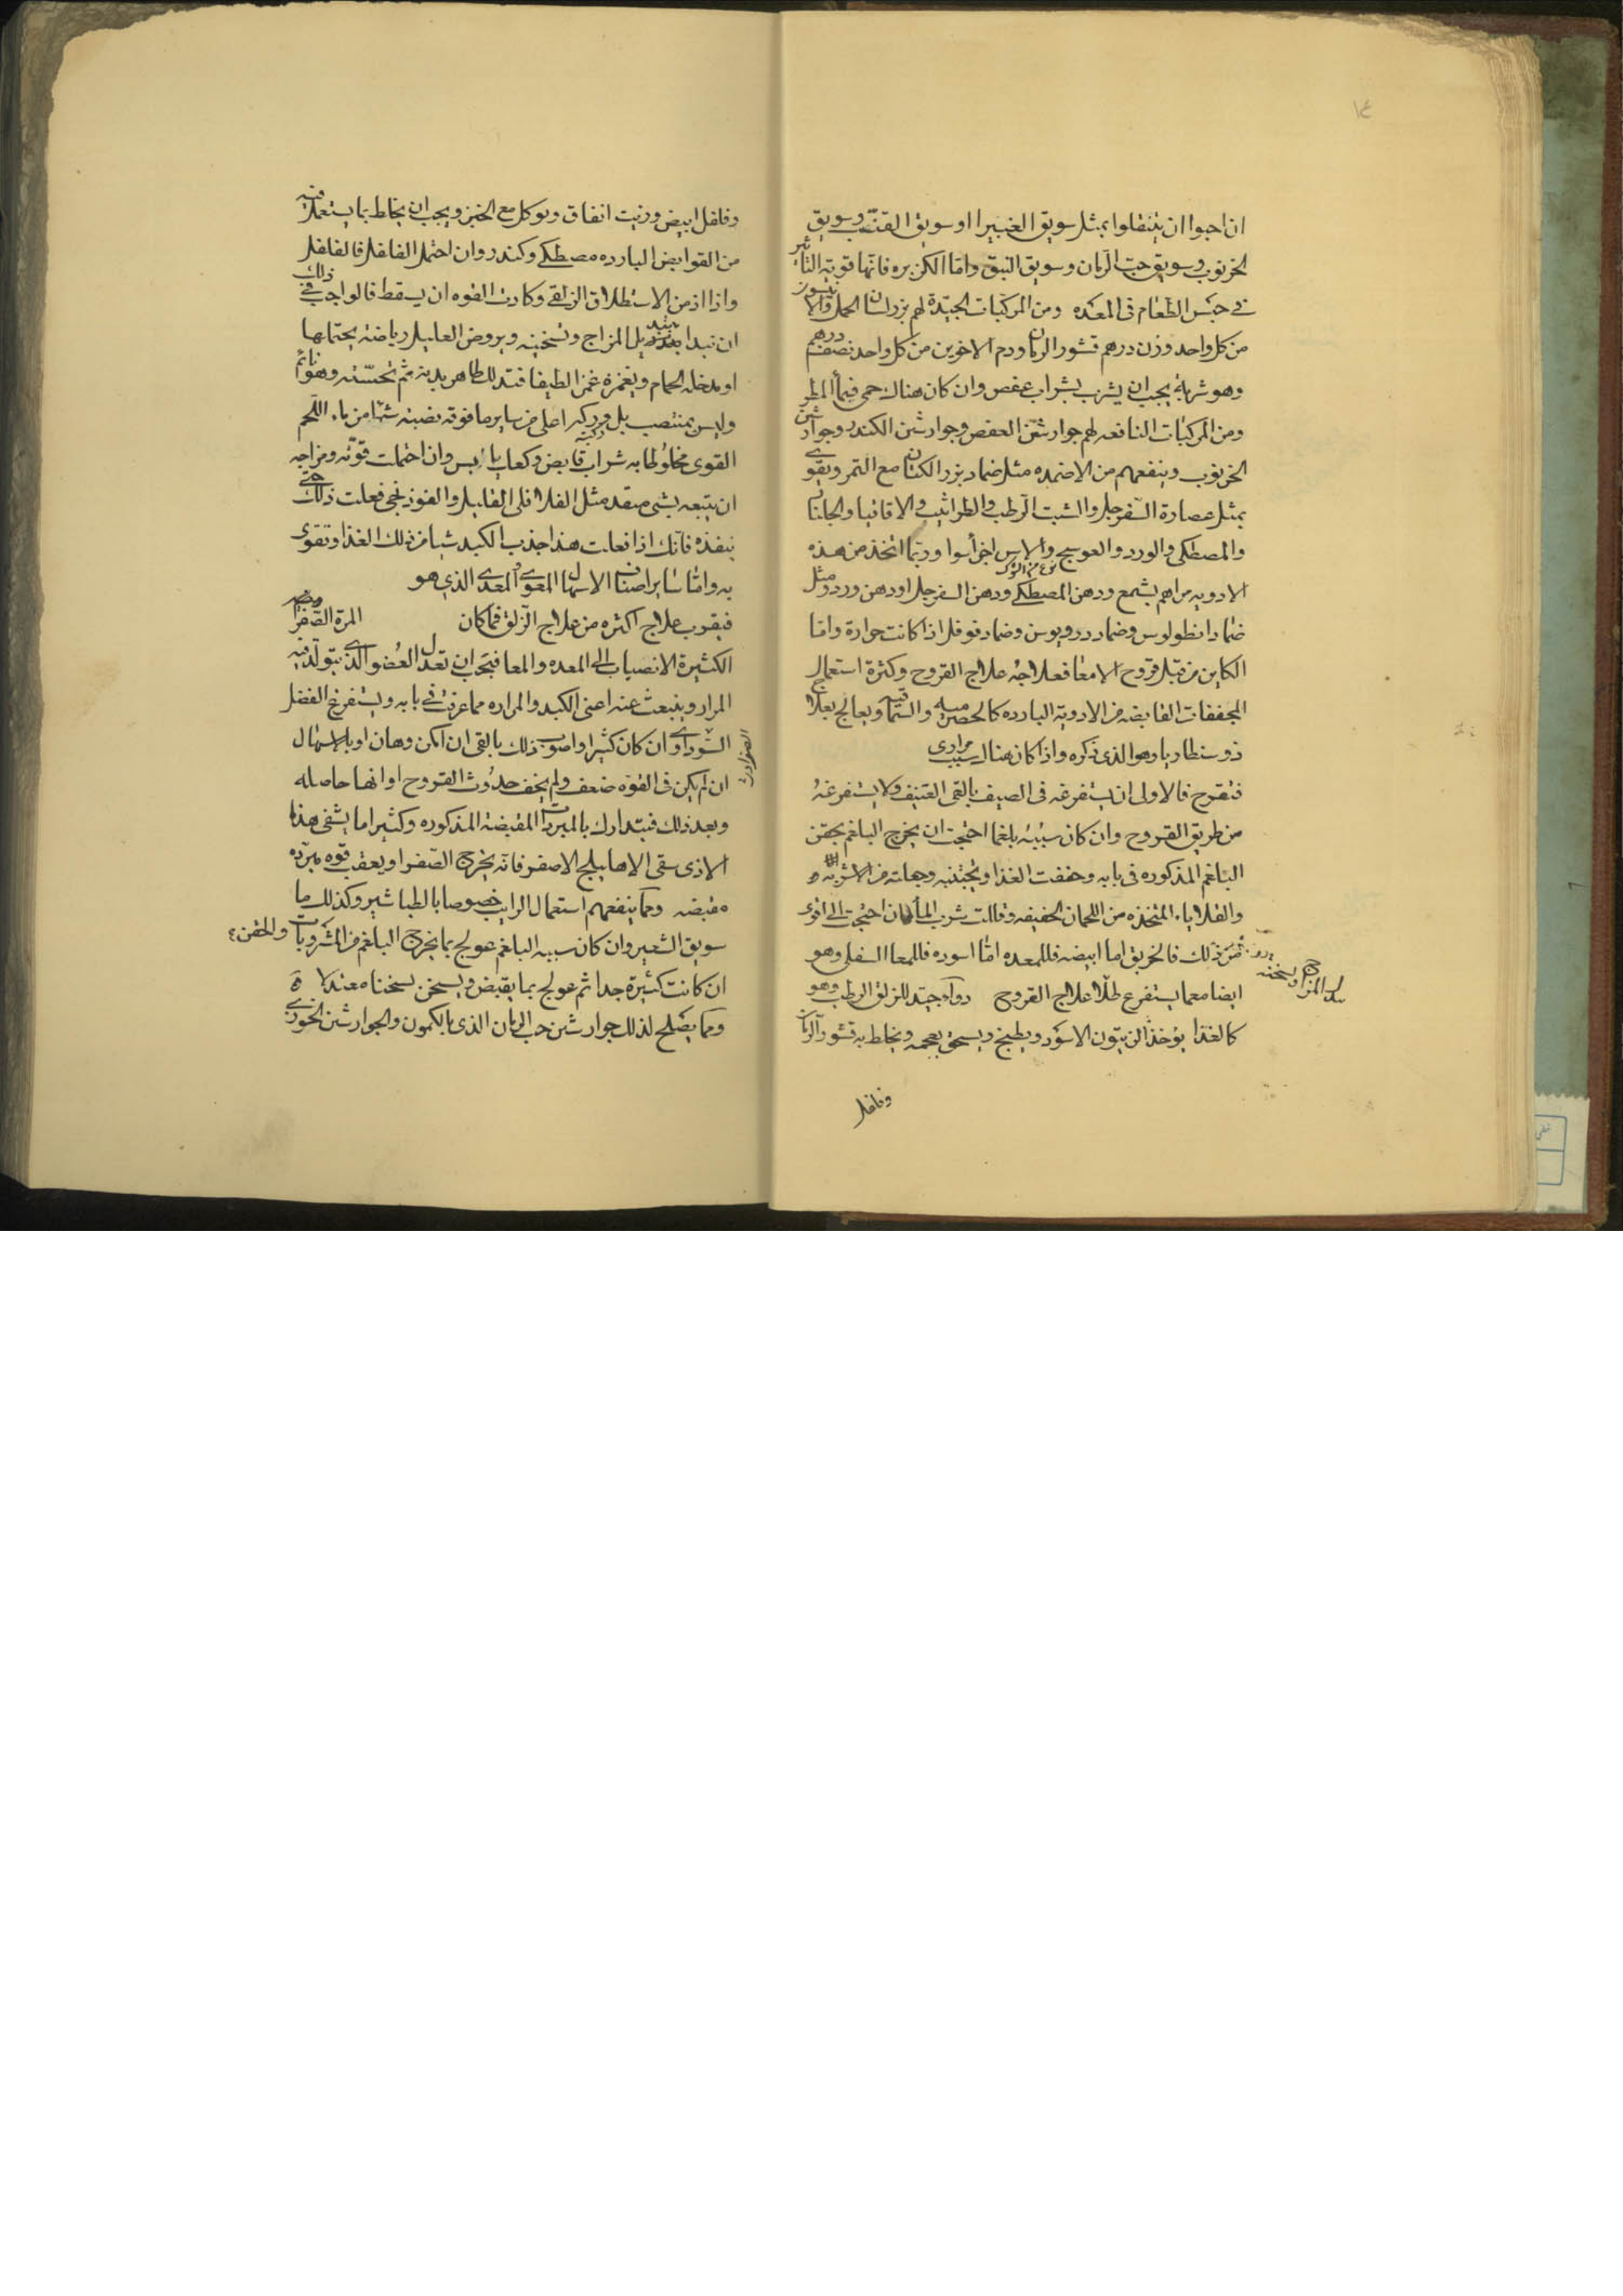 ١٤
ان احبوا ان يتنقلوا بمثل سويق الغبيرا او سويق القنب وسويق
الخرنوب وسويق حب الرمان وسويق النبق واما الكزبره فانها قويه التاثير
في حبس الطعام فى المعده ومن المركبات الجيدة لهم بزر لسان الحمل والانيسون
من كل واحد وزن درهم قشور الرمان ودم الاخوين من كل واحد نصف درهم
وهو شربة يجب ان يشرب بشراب عفص وان كان هناك حمى فبماء المطر
ومن المركبات النافعه لهم جوارشن العفص وجوارشن الكندر وجوارشن
الخرنوب وينفعهم من الاضمده مثل ضماد بزر الكتان مع التمر ويقوى
بمثل عصارة السفرجل والشبت الرطب والطراثيث والاقاقيا والجلنار
والمصطكى والورد والعوسج والاس اجزا سوا وربما اتخذ من هذه
الادويه مراهم بشمع ودهن المصطكى ودهن السفرجل او دهن ورد ومثل
ضماد انطولوس وضماد دروبوس وضماد فوفل اذا كانت حرارة واما
الكاين من قبل قروح الامعا فعلاجه علاج القروح وكثرة استعمال
المجففات القابضه من الادويه البارده كالحصرميه والسماقيه ويعالج بعلاج
ذوسنطاريا وهو الذى نذكره واذا كان هناك سبب مرارى
فتقرح فالاولى ان يستفرغه فى الصيف بالقى العنيف ولا يستفرغه
من طريق القروح وان كان سببه بلغما احتجت ان يخرج البلغم بحقن
البلغم المذكوره فى بابه وخففت الغذا وتجتنبه وجعلته من الاشربه
والقلايا المتخذه من اللحمان الخفيفه وقللت شرب الما فان احتجت الى اقوى
من ذلك فالخربق اما ابيضه فللمعده اما اسوده فللمعا السفلى وهو
ايضا معما يستفرغ طلا علاج القروح دواء جيد للزلق الرطب وهو
كالغذا يوخذ الزيتون الاسود ويطبخ ويسحق بعجمه ويخلط به قشور الرمان
وفلفل
وفلفل ابيض وزيت انفاق ويوكل مع الخبز ويجب ان يخلط بما يستعمل فيه
من القوابض البارده مصطكى وكندر وان احتمل الفلفل فالفلفل
واذا ازمن الاستطلاق الزلقى وكادت القوه ان يسقط فالواجب فى ذلك
ان تبدا بتبديل المزاج وتسخينه ويروض العليل رياضة يحتملها
او يدخله الحمام ويغمزه غمزا لطيفا فتدلك ظاهر بدنه ثم تحسيه وهو نائم
وليس بمنتصب بل وركه اعلى من ساير ما فوقه نصبة شيا من ماء اللحم
القوى مخلوطا به شراب قابض وكعك يابس وان احتملت قوته ومزاجه
ان يتبعه بشى منفذ مثل الفلافلى القليل والفوذنجى فعلت ذلك حتى
ينفذه فانك اذا فعلت هذا جذب الكبد شيا من ذلك الغذا وتقوى
به واما ساير اصناف الاسهال المعوى والمعدى الذى هو
فيقرب علاج اكثره من علاج الزلق فما كان المرة الصفرا
الكثيرة الانصباب الى المعده والمعا فيجب ان تعدل العضو الذى يتولد فيه
المرار وينبعث عنه اعنى الكبد والمراره مما عرفت فى بابه ويستفرغ الفضل
السوداوى وان كان كثيرا واصوب ذلك بالقى ان امكن وهان او بالاسهال
ان لم يكن فى القوه ضعف ولم يخف حدوث القروح او انها حاصله
وبعد ذلك فيتدارك بالمبردات المقبضة المذكوره وكثيرا ما يشفى هذا
الاذى سقى الاهليلج الاصفر فانه يخرج الصفرا ويعقب قوه مبرده
مقبضه ومما ينفعهم استعمال الرايب خصوصا بالطباشير وكذلك ما
سويق الشعير وان كان سببه البلغم عولج بما يخرج البلغم من المشروبات والحقن
ان كانت كثيرة جدا ثم عولج بما يقبض ويسخن تسخنا معتدلا
ومما يصلح لذلك جوارشن حب الرمان الذى بالكمون والجوارشن الخوزى